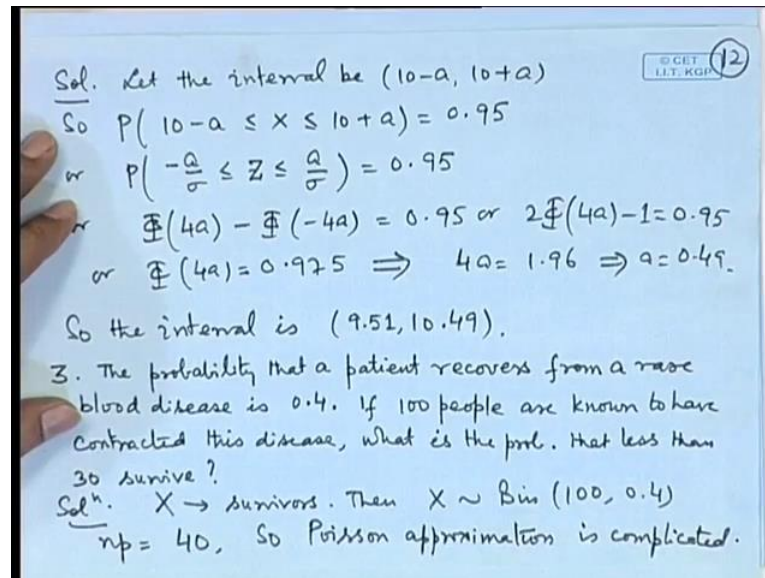 Sol. Let the interval be (10-a, 10+a)
© CET
I.I.T. KGP
12
So P( 10-a ≤ X ≤ 10+a) = 0.95
or P( -a/σ ≤ Z ≤ a/σ ) = 0.95
or Φ(4a) - Φ(-4a) = 0.95 or 2Φ(4a)-1=0.95
or Φ(4a)=0.975 ⇒ 4a= 1.96 ⇒ a=0.49.
So the interval is (9.51, 10.49).
3. The probability that a patient recovers from a rare
blood disease is 0.4. If 100 people are known to have
contracted this disease, what is the prob. that less than
30 survive?
Solⁿ. X → survivors. Then X ~ Bin (100, 0.4)
np= 40, So Poisson approximation is complicated.